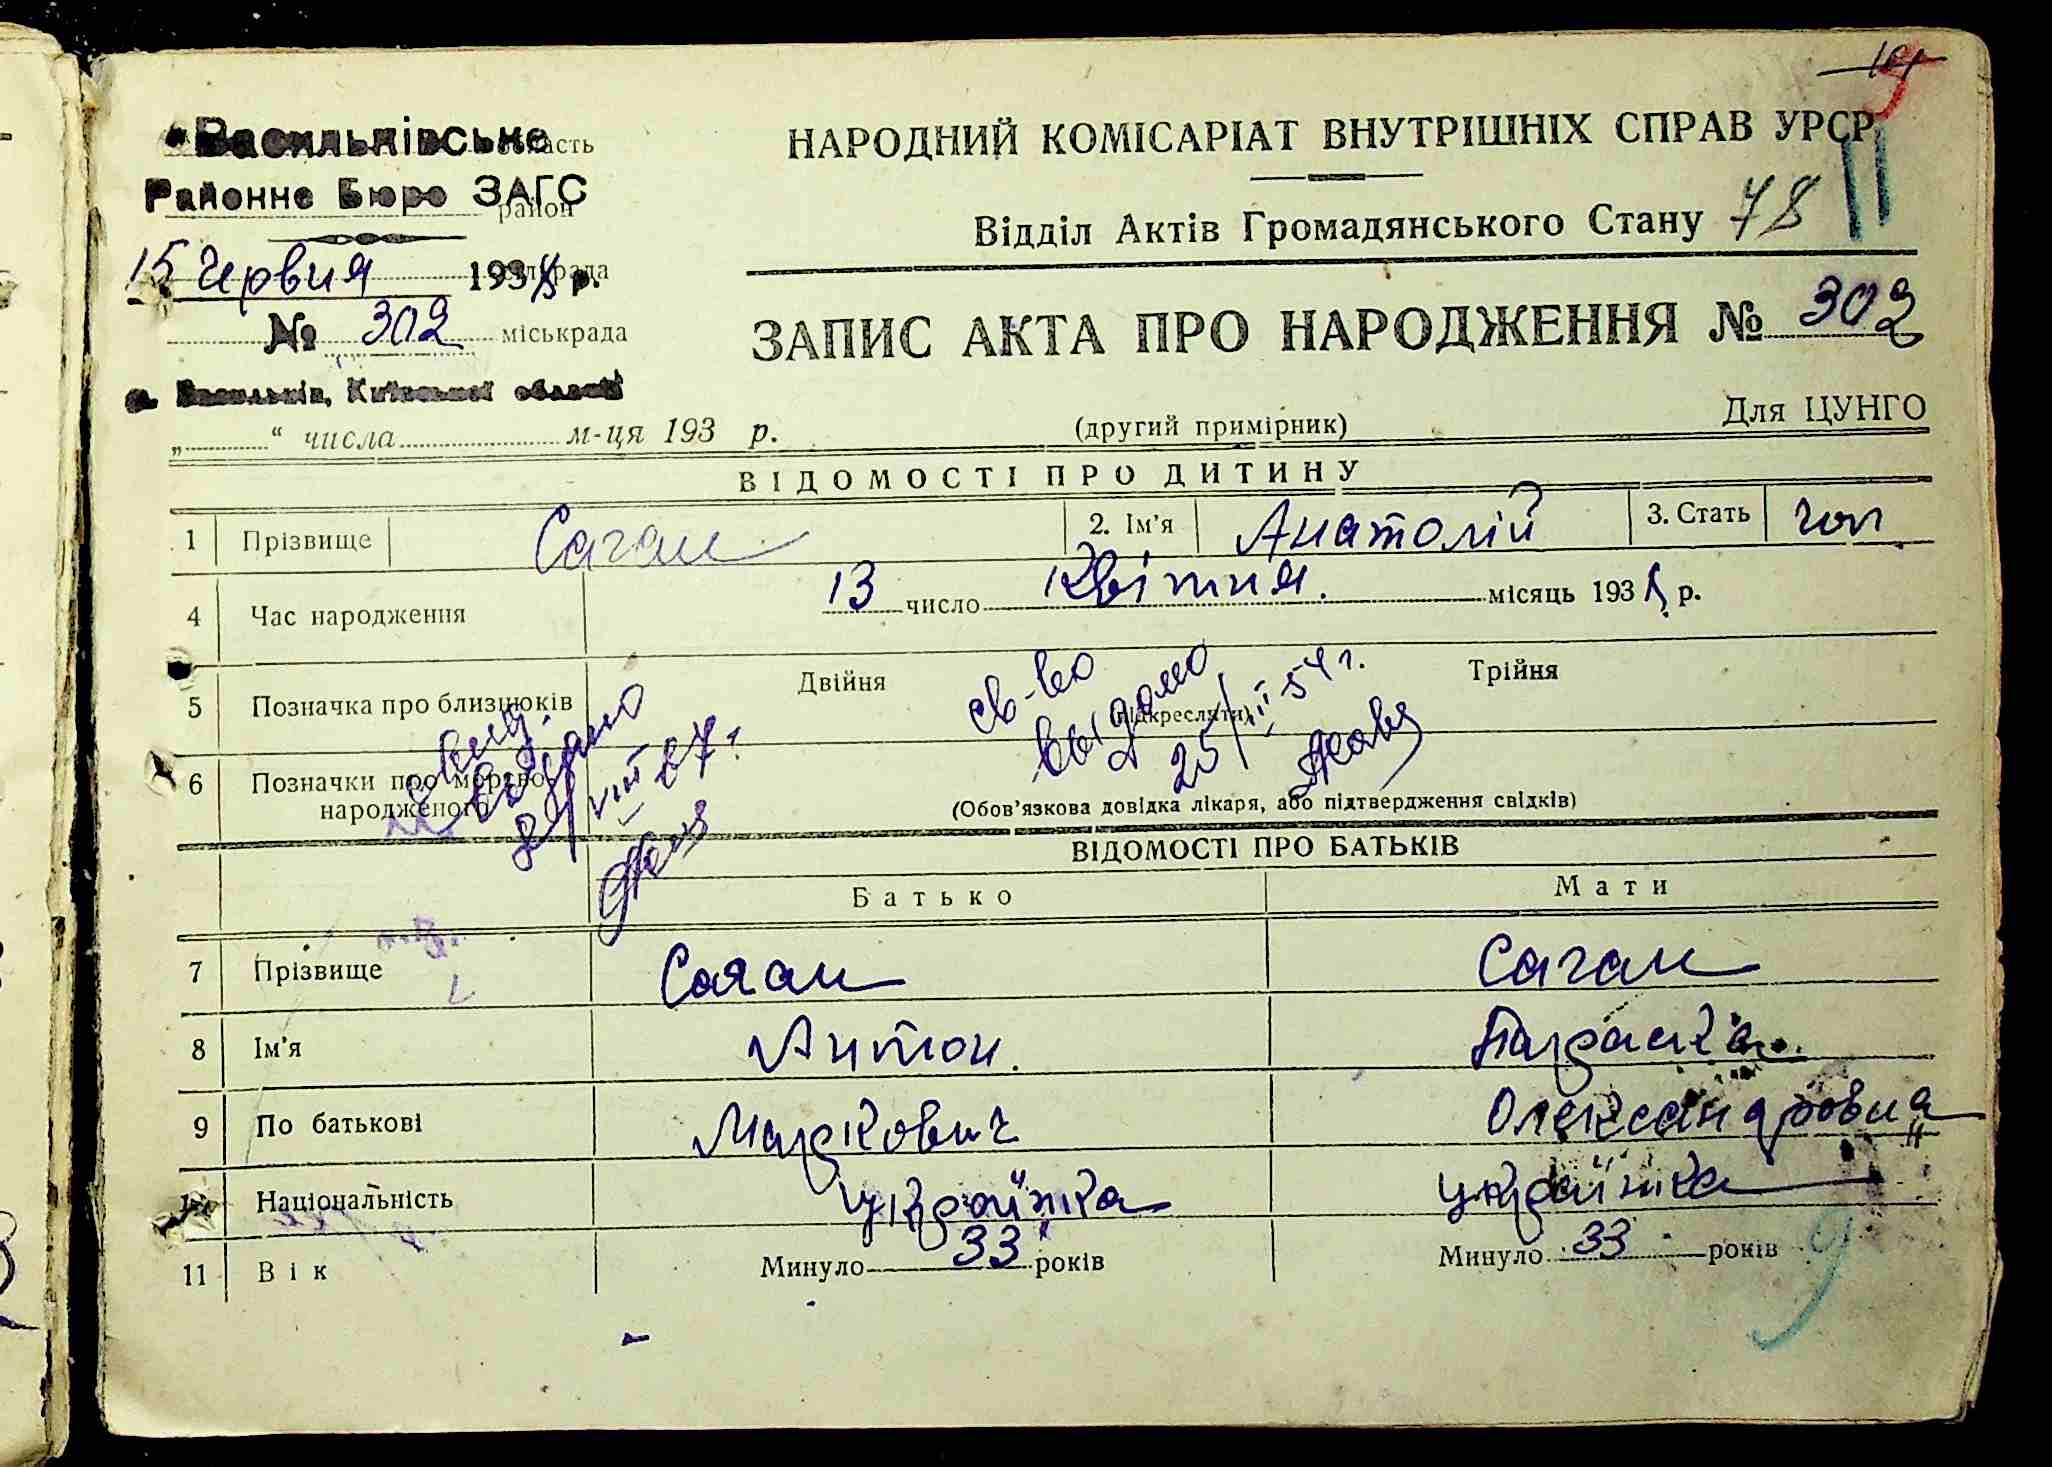 Васильківське область
Районне Бюро ЗАГС район
15 Червня 193 р. сільрада
№ 302 міськрада
м. Васильків, Київської області
„ “ числа м-ця 193 р.
НАРОДНИЙ КОМІСАРІАТ ВНУТРІШНІХ СПРАВ УРСР
Відділ Актів Громадянського Стану 78
ЗАПИС АКТА ПРО НАРОДЖЕННЯ № 302
(другий примірник) Для ЦУНГО
ВІДОМОСТІ ПРО ДИТИНУ
1 Прізвище Саган 2. Ім’я Анатолій 3. Стать чол
4 Час народження 13 число Квітня. місяць 193 р.
5 Позначка про близнюків Двійня Трійня
(підкреслити)
св-во
выдано
25/III-54 г.
6 Позначки про мертво-
народженого (Обов’язкова довідка лікаря, або підтвердження свідків)
ВІДОМОСТІ ПРО БАТЬКІВ
Батько Мати
7 Прізвище Саган Саган
8 Ім’я Антон. Параска.
9 По батькові Маркович Олександровна
Національність українка українка
11 Вік Минуло 33 років Минуло 33 років